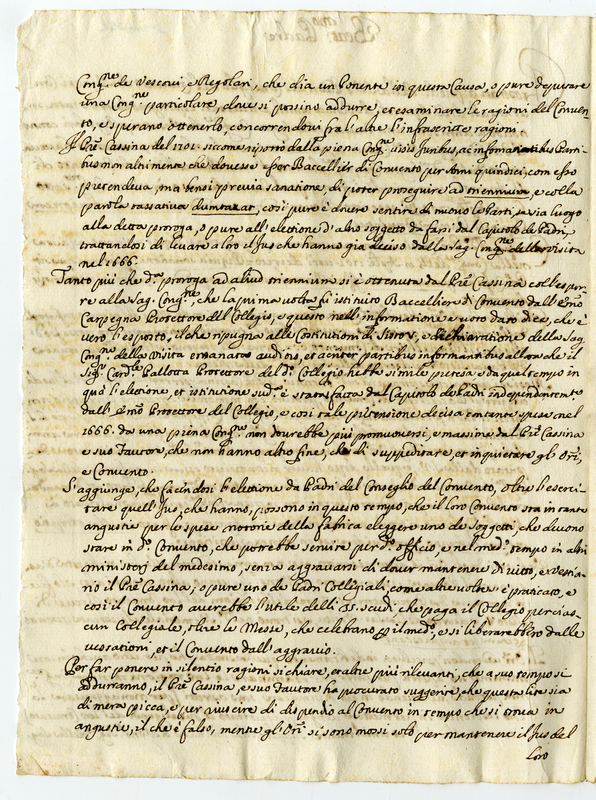 Cong.ne de Vescovi, e Regolari, che dia un Ponente in questa Causa, o pure deputare
una Cong.ne particolare, dove si possino addurre, et esaminare le ragioni del Conven-
to, e sperano ottenerlo, concorrendovi fra l'altre l'infrascritte ragioni.
Il Pre Cassina del 1701. siccome riportò dalla piena Cong.ne visis Juribus, ac informantibus Parti-
bus non altrimente che dovesse esser Baccellier di Convento per Anni quindici, com esso
pretendeva, ma bensì previa sanatione, di poter proseguire ad triennium, e colla
parola tassativa dumtaxat, così pure è dovere sentire di nuovo le Parti, se via luogo
alla detta proroga, o pure all'elettione d'altro soggetto da farsi dal Capitolo de Padri,
trattandosi di levare a loro il Jus che hanno già deciso dalla Sag. Cong.ne della visita
nel 1666.
Tanto più che d.a proroga ad aliud triennium si è ottenuta dal Pre Cassina coll'espor-
re alla Sag. Cong.ne, che la prima volta fù istituito Baccelliere di Convento dall'Emo
Carpegna Protettore del Collegio, e questo nell'informatione e voto dato dice, che è
vero l'esposto, il che ripugna alle Costitutioni di Sisto V, e dichiaratione della Sag.
Cong.ne della Visita emanata audito, et acriter partibus informantibus allora che il
Sig.r Card.le Pallotta Protettore del d.o Collegio hebbe simile pretesa e da quel tempo in
quà l'elettione, et istitutione sud.a è stata fatta dal Capitolo de Padri independentemente
dall'Emo Protettore del Collegio, e così tale pretensione decisa con tante spese nel
1666. da una piena Cong.ne non dovrebbe più promuoversi, e massime dal Pre Cassina
e suo Fautore, che non hanno altro fine, che di suppeditare, et inquietare gli Ori,
e Convento.
S'aggiunge, che facendosi l'elettione da Padri del Conseglio del Convento, oltre l'eserci-
tare quell'Jus, che hanno, possono in questo tempo, che il loro Convento sta in tante
angustie per le spese notorie della fabrica eleggere uno de soggetti, che devono
stare in d.o Convento, che potrebbe servire per d.o offitio, e nel med.o tempo in altri
ministerj del medesimo, senza aggravarsi di dover mantenere di vitto, e vestia-
rio il Pre Cassina; o pure uno de Padri Collegiali, come altre volte si è praticato, e
così il Convento averebbe l'utile delli 35. scudi che paga il Collegio per cias-
cun Collegiale, oltre le Messe, che celebrano p il med.o, e si liberarebbero dalle
vessationi, et il Convento dall'aggravio.
Per far ponere in silentio ragioni sì chiare, et altre più rilevanti, che a suo tempo si
addurranno, il Pre Cassina, e suo Fautore ha procurato suggerire, che questa lite sia
di mera picca, e per riuscire di dispendio al Convento in tempo che si trova in
angustie, il che è falso, mentre gli Ori si sono mossi solo per mantenere il Jus del
loro